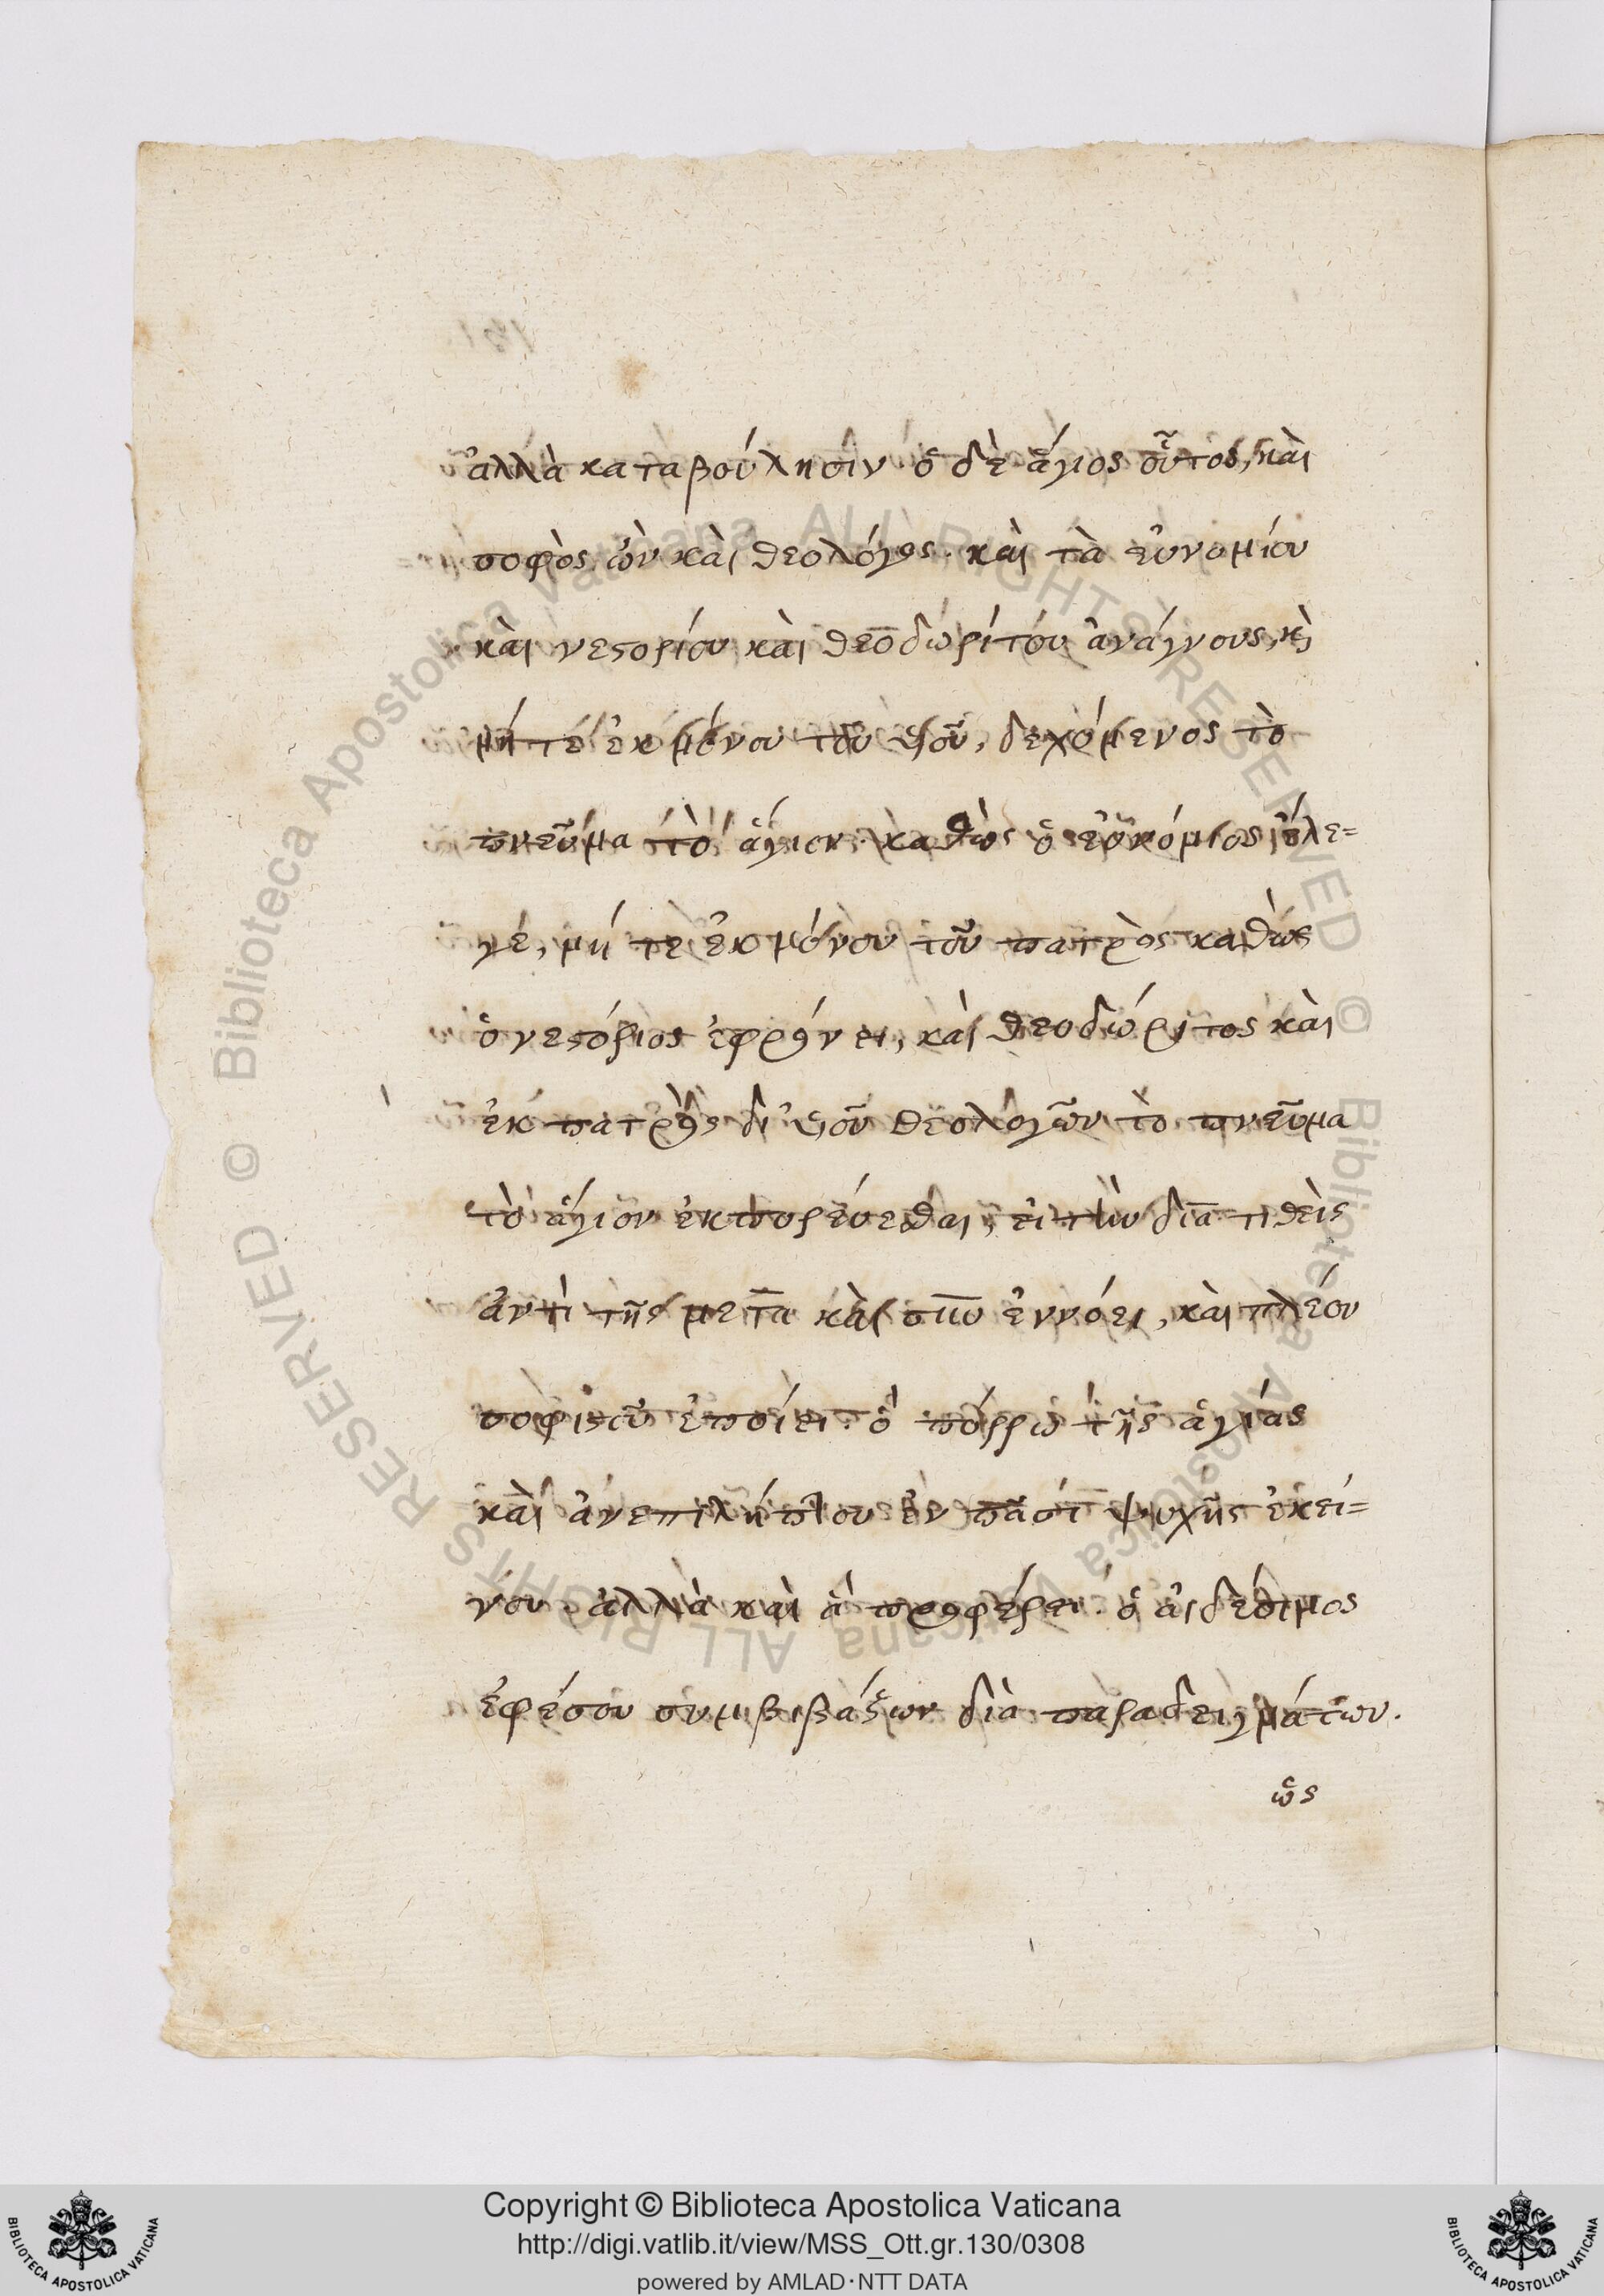 ἀλλὰ καταβούλησιν· ὁ δὲ ἅγιος οὗτος, καὶ
σοφὸς ὢν καὶ θεολόγος· καὶ τὰ εὐνομίου
καὶ νεστορίου καὶ θεοδωρίτου ἀνάγνους, κ̀
μήτε ἐκ μόνου τοῦ υἱοῦ, δεχόμενος τὸ
πνεῦμα τὸ ἅγιον· καθὼς ὁ εὐνόμιος ἔλε=
γέ, μή τε ἐκ μόνου τοῦ πατρὸς καθώς
ὁ νεστόριος ἐφρόνει, καὶ θεοδώριτος καὶ
ἐκ πατρὸς δι' υἱοῦ θεολογῶν τὸ πνεῦμα
τὸ ἅγιον ἐκπορεύεσθαι, εἰ τὴν διὰ τιθεὶς
ἀντὶ τῆς μετὰ καὶ σὺν ἐννόει, καὶ πλέον
σοφιστοῦ ἐποίει· ὃ πόρρω τῆς ἁγίας
καὶ ἀνεπιλήπτου ἐν πᾶσι ψυχῆς ἐκεί=
νου· ἀλλὰ καὶ ἃ προφέρει· ὁ ἀιδέσιμος
ἐφέσου συμβιβάζων διὰ παραδειγμάτων.
ὡς
Copyright © Biblioteca Apostolica Vaticana
http://digi.vatlib.it/view/MSS_Ott.gr.130/0308
powered by AMLAD·NTT DATA
BIBLIOTECA APOSTOLICA VATICANA
BIBLIOTECA APOSTOLICA VATICANA
© Biblioteca Apostolica Vaticana ALL RIGHTS RESERVED © Biblioteca Apostolica Vaticana ALL RIGHTS RESERVED